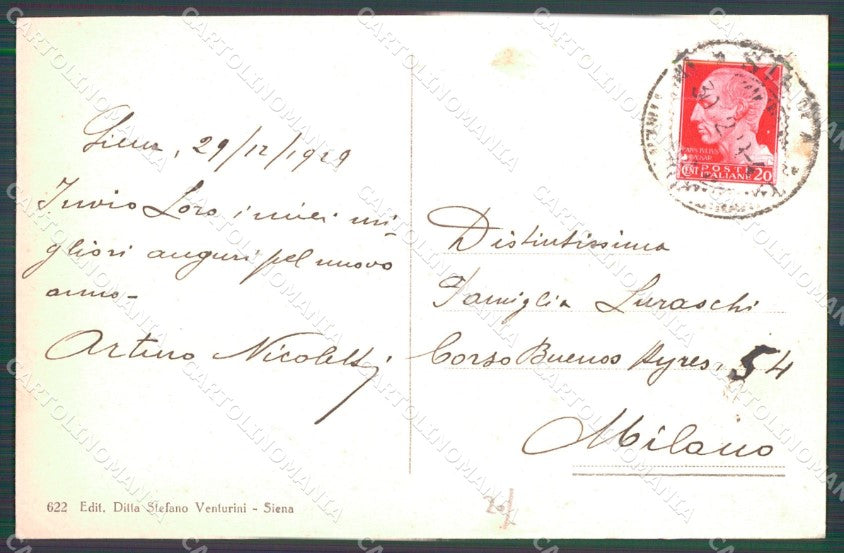 Siena, 29/12/1929
Invio Loro i miei mi-
gliori auguri pel nuovo
anno-
Arturo Nicoletti
Distintissima
Famiglia Luraschi
Corso Buenos Ayres, 54
Milano
POSTE
CENT ITALIANE 20
622 Edit. Ditta Stefano Venturini - Siena
CARTOLINOMANIA